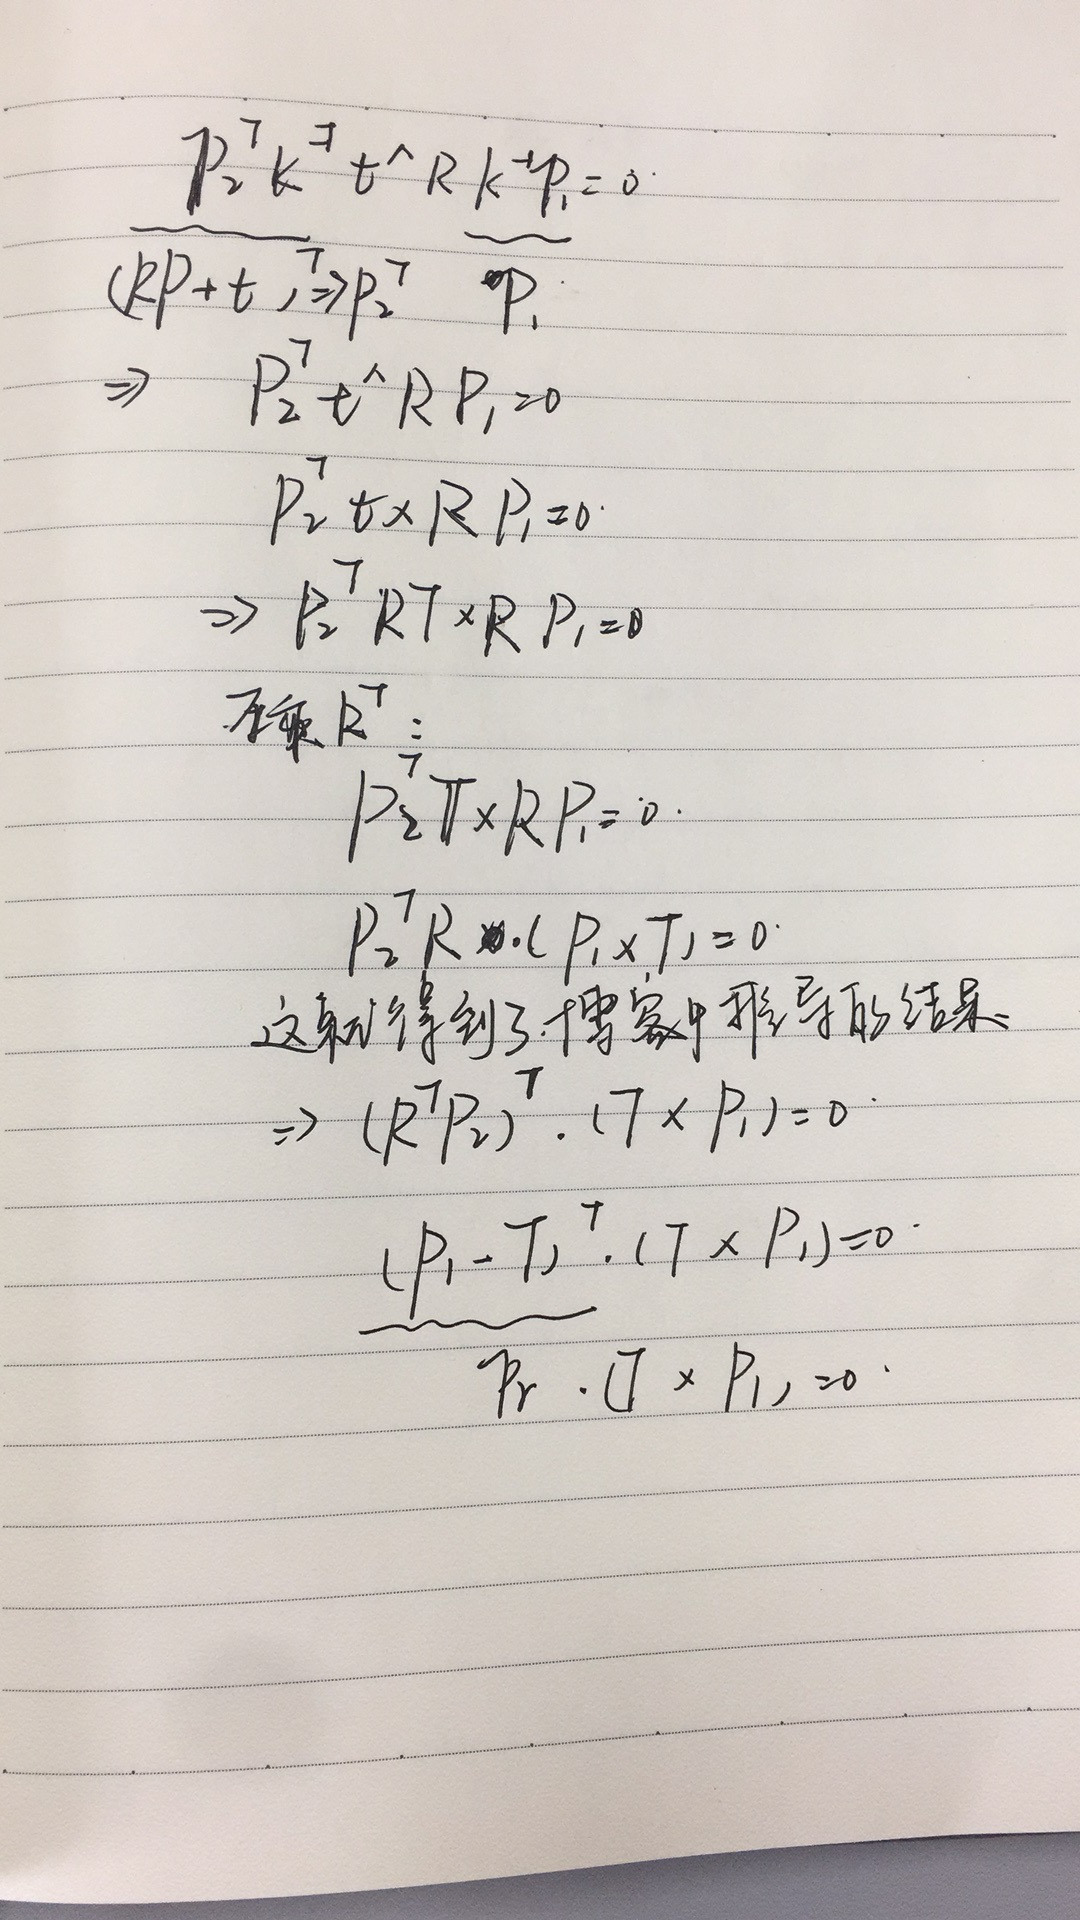 P₂ᵀ K⁻ᵀ t^ R K⁻¹ P₁ = 0.
(RP + t)ᵀ ⇒ P₂ᵀ P₁
⇒ P₂ᵀ t^ R P₁ = 0
P₂ᵀ t × R P₁ = 0.
⇒ P₂ᵀ RT × R P₁ = 0
左乘 Rᵀ:
P₂ᵀ T × R P₁ = 0.
P₂ᵀ R · (P₁ × T) = 0.
这就得到了博客中推导的结果.
⇒ (Rᵀ P₂)ᵀ · (T × P₁) = 0.
(P₁ - T)ᵀ · (T × P₁) = 0.
Pᵣ · (T × P₁) = 0.